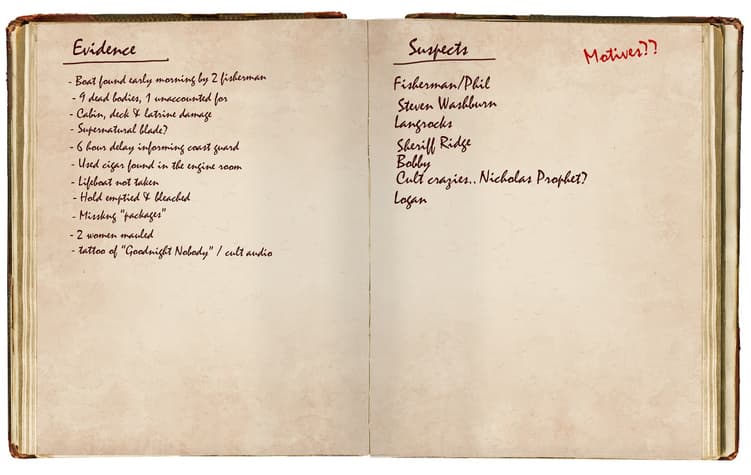 Evidence
- Boat found early morning by 2 fisherman
- 9 dead bodies, 1 unaccounted for
- Cabin, deck & latrine damage
- Supernatural blade?
- 6 hour delay informing coast guard
- Used cigar found in the engine room
- Lifeboat not taken
- Hold emptied & bleached
- Misskng "packages"
- 2 women mauled
- tattoo of "Goodnight Nobody" / cult audio
Suspects
Motives??
Fisherman/Phil
Steven Washburn
Langrocks
Sheriff Ridge
Bobby
Cult crazies.. Nicholas Prophet?
Logan